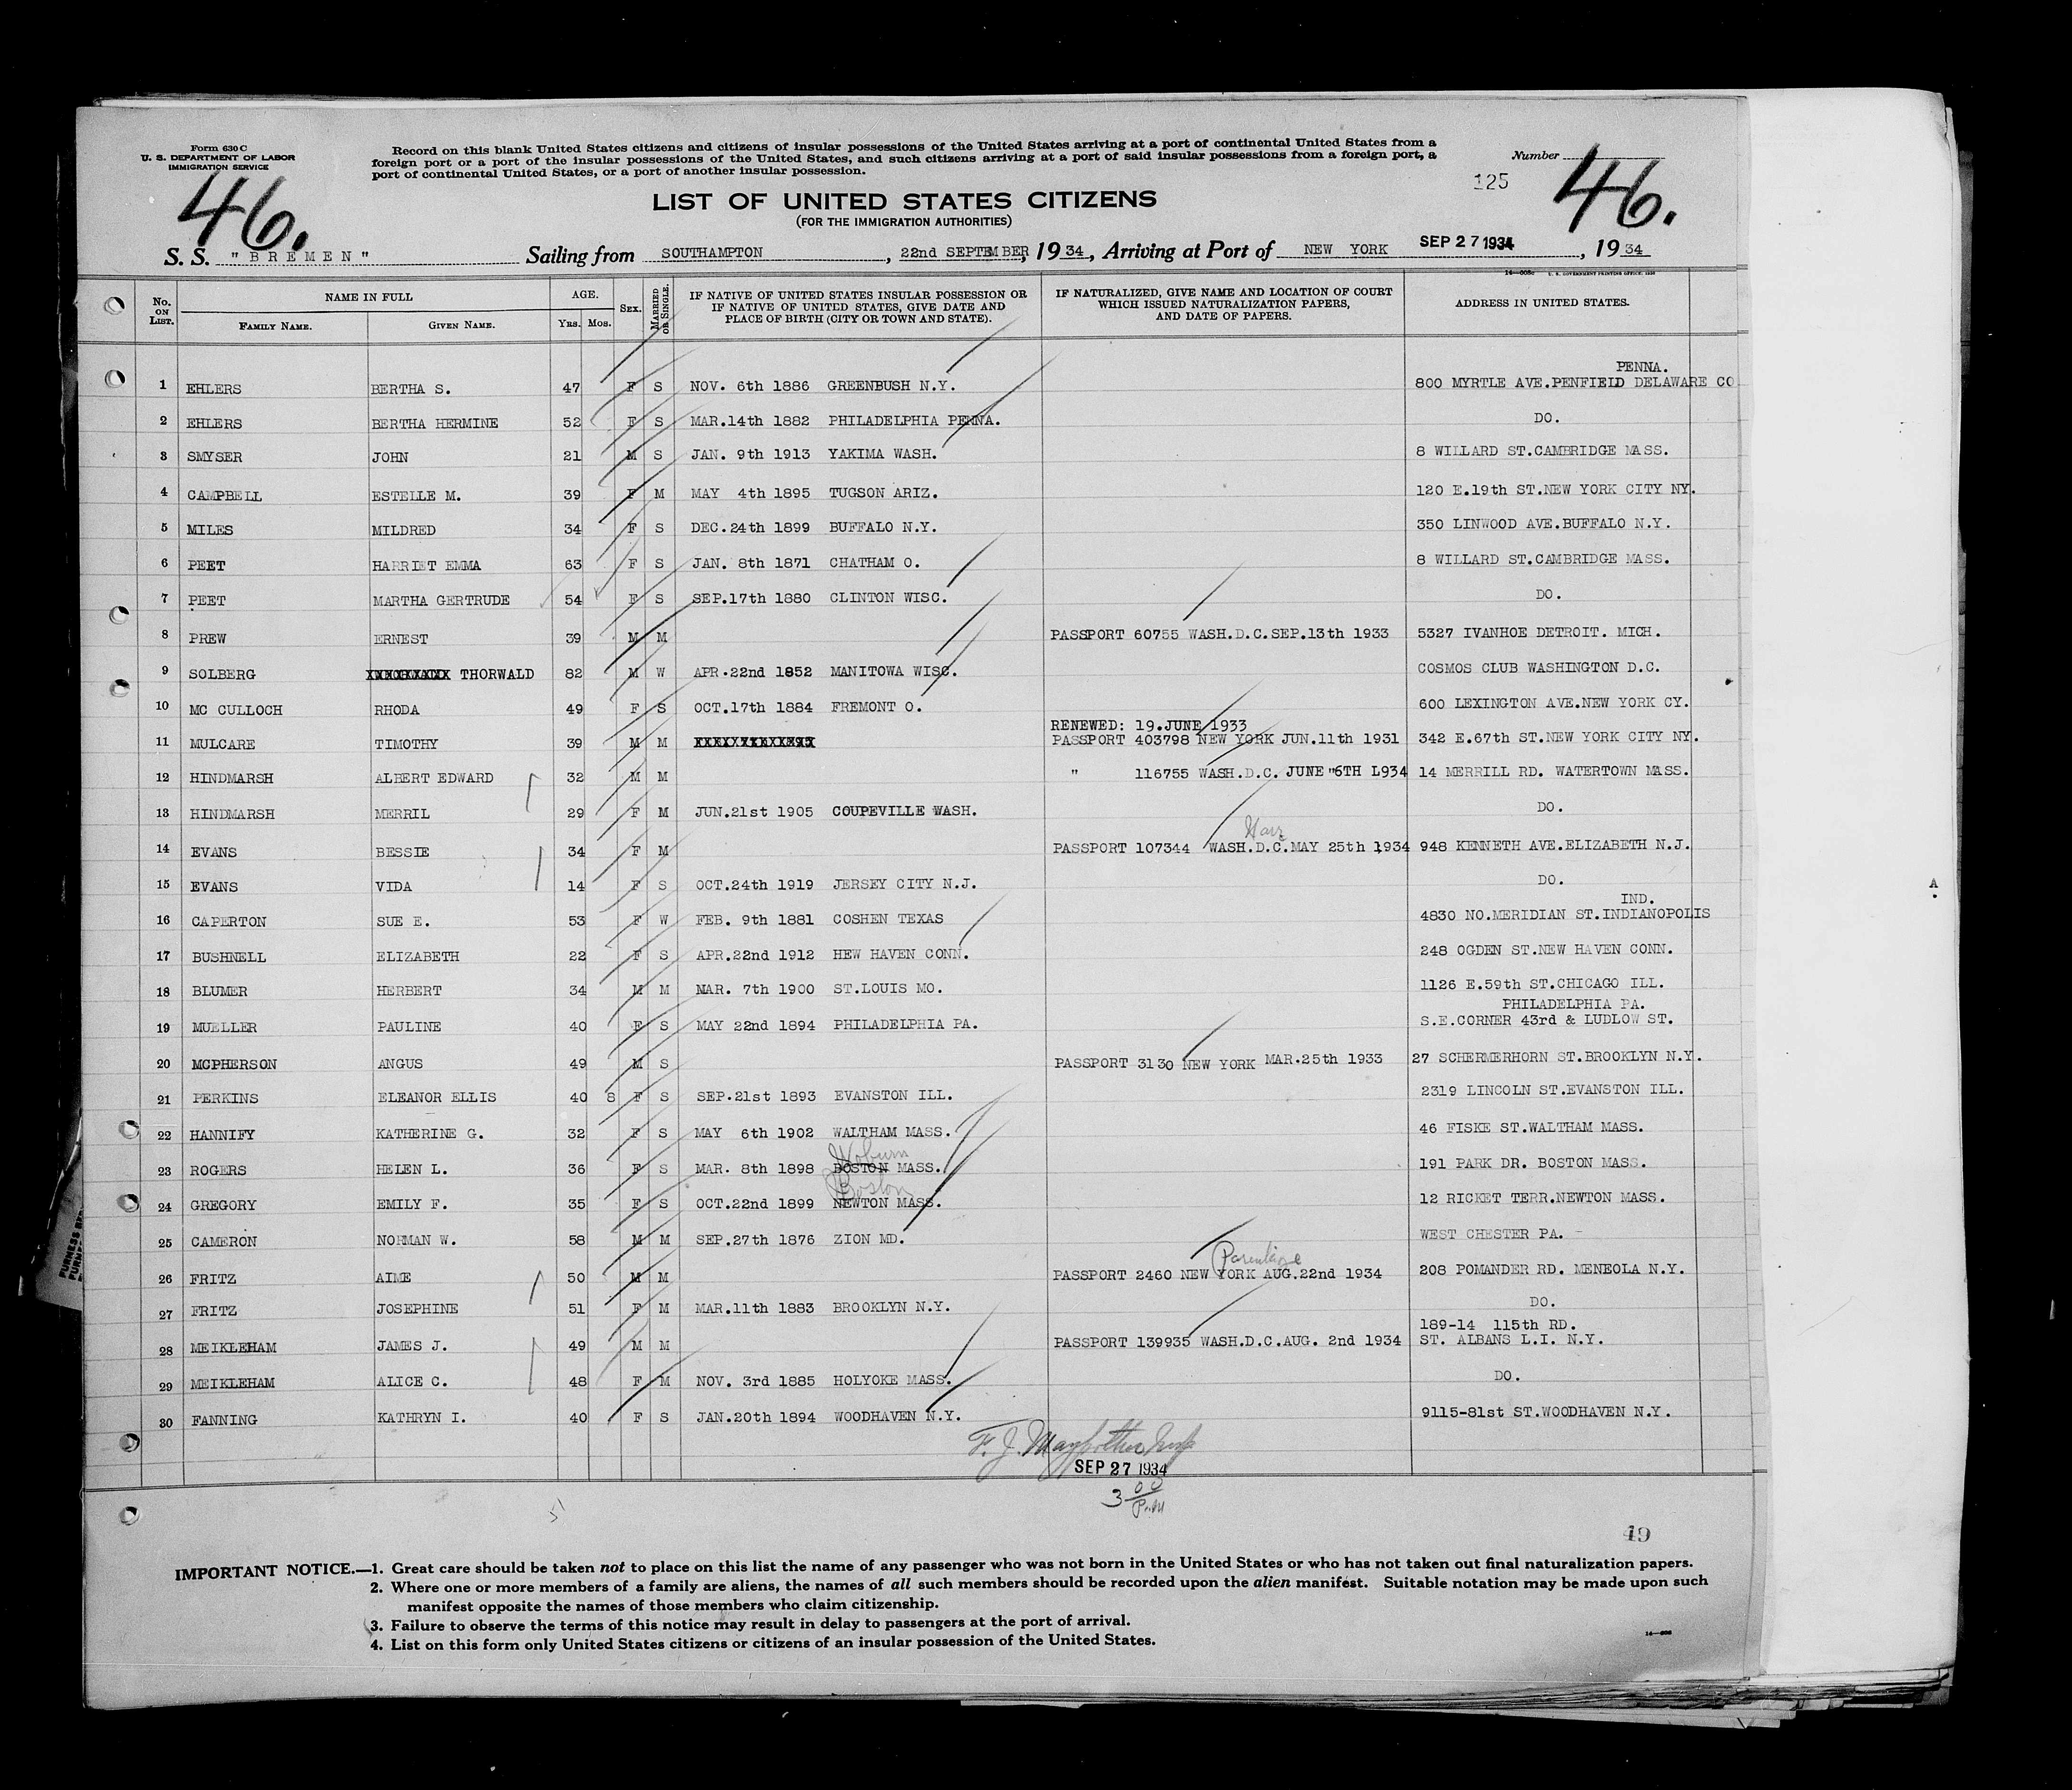 Form 630 C
U. S. DEPARTMENT OF LABOR
IMMIGRATION SERVICE
Record on this blank United States citizens and citizens of insular possessions of the United States arriving at a port of continental United States from a
foreign port or a port of the insular possessions of the United States, and such citizens arriving at a port of said insular possessions from a foreign port, a
port of continental United States, or a port of another insular possession.
Number
125
46.
46.
LIST OF UNITED STATES CITIZENS
(FOR THE IMMIGRATION AUTHORITIES)
S. S. "BREMEN" Sailing from SOUTHAMPTON, 22nd SEPTEMBER, 19 34, Arriving at Port of NEW YORK SEP 27 1934, 19 34
No. ON LIST. NAME IN FULL FAMILY NAME. GIVEN NAME. AGE. YRS. MOS. SEX. MARRIED OR SINGLE. IF NATIVE OF UNITED STATES INSULAR POSSESSION OR IF NATIVE OF UNITED STATES, GIVE DATE AND PLACE OF BIRTH (CITY OR TOWN AND STATE). IF NATURALIZED, GIVE NAME AND LOCATION OF COURT WHICH ISSUED NATURALIZATION PAPERS, AND DATE OF PAPERS. ADDRESS IN UNITED STATES.
PENNA.
1 EHLERS BERTHA S. 47 F S NOV. 6th 1886 GREENBUSH N.Y. 800 MYRTLE AVE.PENFIELD DELAWARE CO
2 EHLERS BERTHA HERMINE 52 F S MAR.14th 1882 PHILADELPHIA PENNA. DO.
3 SMYSER JOHN 21 M S JAN. 9th 1913 YAKIMA WASH. 8 WILLARD ST.CAMBRIDGE MASS.
4 CAMPBELL ESTELLE M. 39 F M MAY 4th 1895 TUGSON ARIZ. 120 E.19th ST.NEW YORK CITY NY.
5 MILES MILDRED 34 F S DEC.24th 1899 BUFFALO N.Y. 350 LINWOOD AVE.BUFFALO N.Y.
6 PEET HARRIET EMMA 63 F S JAN. 8th 1871 CHATHAM O. 8 WILLARD ST.CAMBRIDGE MASS.
7 PEET MARTHA GERTRUDE 54 F S SEP.17th 1880 CLINTON WISC. DO.
8 PREW ERNEST 39 M M PASSPORT 60755 WASH.D.C.SEP.13th 1933 5327 IVANHOE DETROIT. MICH.
9 SOLBERG THORWALD 82 M W APR.22nd 1852 MANITOWA WISC. COSMOS CLUB WASHINGTON D.C.
10 MC CULLOCH RHODA 49 F S OCT.17th 1884 FREMONT O. 600 LEXINGTON AVE.NEW YORK CY.
RENEWED: 19.JUNE 1933
11 MULCARE TIMOTHY 39 M M PASSPORT 403798 NEW YORK JUN.11th 1931 342 E.67th ST.NEW YORK CITY NY.
12 HINDMARSH ALBERT EDWARD 32 M M " 116755 WASH.D.C. JUNE "6TH L934 14 MERRILL RD. WATERTOWN MASS.
13 HINDMARSH MERRIL 29 F M JUN.21st 1905 COUPEVILLE WASH. DO.
14 EVANS BESSIE 34 F M PASSPORT 107344 WASH.D.C.MAY 25th 1934 948 KENNETH AVE.ELIZABETH N.J.
15 EVANS VIDA 14 F S OCT.24th 1919 JERSEY CITY N.J. DO.
IND.
16 CAPERTON SUE E. 53 F W FEB. 9th 1881 COSHEN TEXAS 4830 NO.MERIDIAN ST.INDIANOPOLIS
17 BUSHNELL ELIZABETH 22 F S APR.22nd 1912 HEW HAVEN CONN. 248 OGDEN ST.NEW HAVEN CONN.
18 BLUMER HERBERT 34 M M MAR. 7th 1900 ST.LOUIS MO. 1126 E.59th ST.CHICAGO ILL.
PHILADELPHIA PA.
19 MUELLER PAULINE 40 F S MAY 22nd 1894 PHILADELPHIA PA. S.E.CORNER 43rd & LUDLOW ST.
20 MCPHERSON ANGUS 49 M S PASSPORT 3130 NEW YORK MAR.25th 1933 27 SCHERMERHORN ST.BROOKLYN N.Y.
21 PERKINS ELEANOR ELLIS 40 8 F S SEP.21st 1893 EVANSTON ILL. 2319 LINCOLN ST.EVANSTON ILL.
22 HANNIFY KATHERINE G. 32 F S MAY 6th 1902 WALTHAM MASS. 46 FISKE ST.WALTHAM MASS.
Woburn
23 ROGERS HELEN L. 36 F S MAR. 8th 1898 BOSTON MASS. 191 PARK DR. BOSTON MASS.
Boston
24 GREGORY EMILY F. 35 F S OCT.22nd 1899 NEWTON MASS. 12 RICKET TERR.NEWTON MASS.
25 CAMERON NORMAN W. 58 M M SEP.27th 1876 ZION MD. WEST CHESTER PA.
Parentage
26 FRITZ AIME 50 M M PASSPORT 2460 NEW YORK AUG.22nd 1934 208 POMANDER RD. MENEOLA N.Y.
27 FRITZ JOSEPHINE 51 F M MAR.11th 1883 BROOKLYN N.Y. DO.
189-14 115th RD.
28 MEIKLEHAM JAMES J. 49 M M PASSPORT 139935 WASH.D.C.AUG. 2nd 1934 ST. ALBANS L.I. N.Y.
29 MEIKLEHAM ALICE C. 48 F M NOV. 3rd 1885 HOLYOKE MASS. DO.
30 FANNING KATHRYN I. 40 F S JAN.20th 1894 WOODHAVEN N.Y. 9115-81st ST.WOODHAVEN N.Y.
F. J.
SEP 27 1934
3 00
P.M
49
IMPORTANT NOTICE.—1. Great care should be taken not to place on this list the name of any passenger who was not born in the United States or who has not taken out final naturalization papers.
2. Where one or more members of a family are aliens, the names of all such members should be recorded upon the alien manifest. Suitable notation may be made upon such
manifest opposite the names of those members who claim citizenship.
3. Failure to observe the terms of this notice may result in delay to passengers at the port of arrival.
4. List on this form only United States citizens or citizens of an insular possession of the United States.